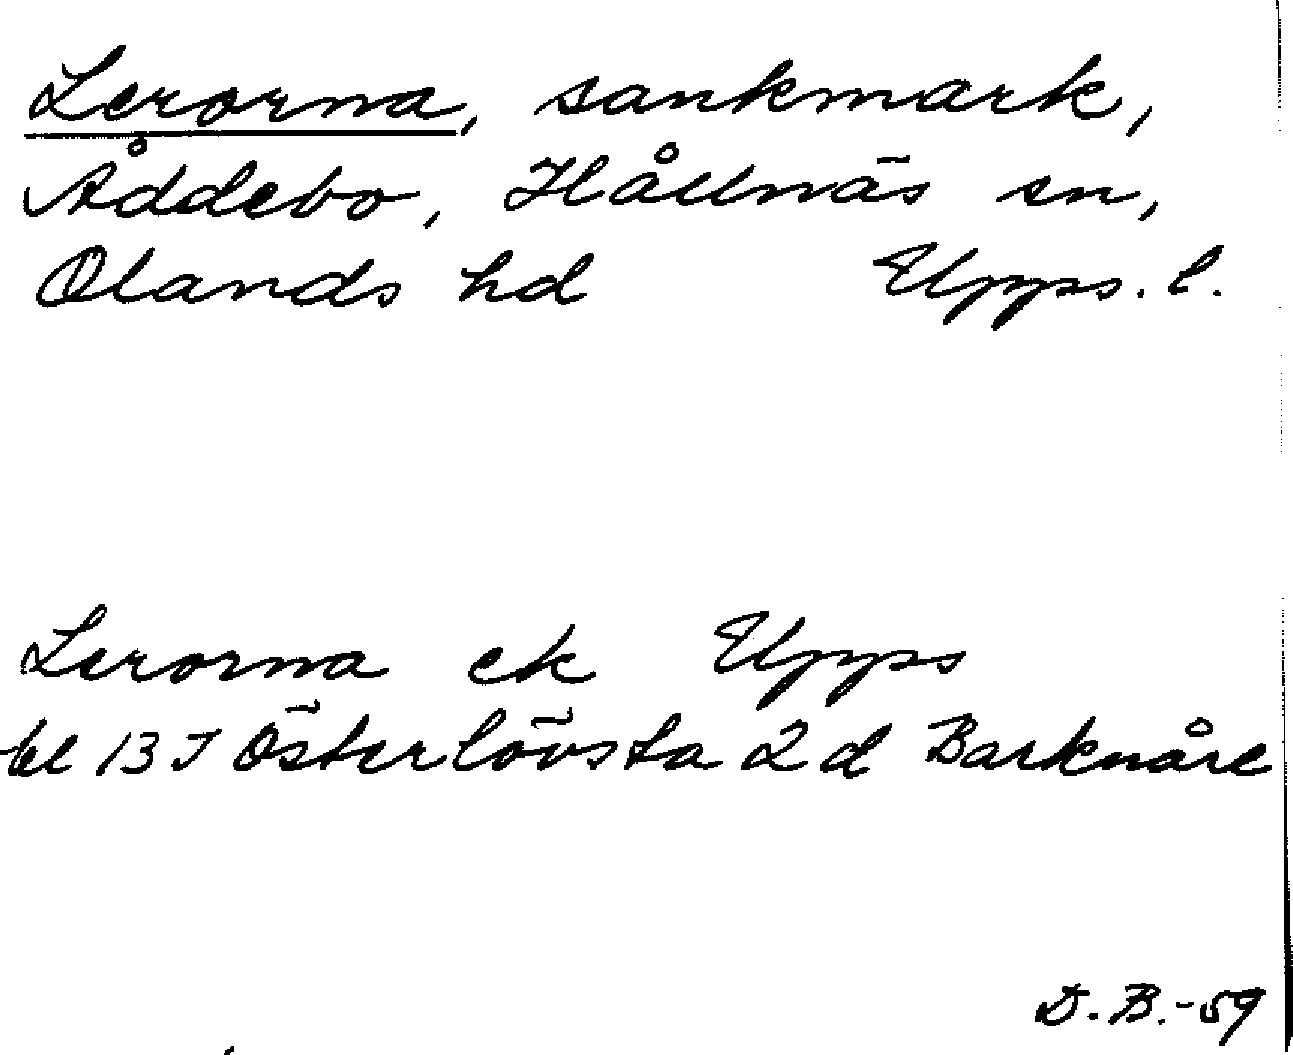 Lerorna, sankmark,
Åddebo, Hållnäs sn,
Olands hd Upps. l.
Lerorna ek Upps
bl 13 I Österlövsta 2 d Barknåre
D. B. -59